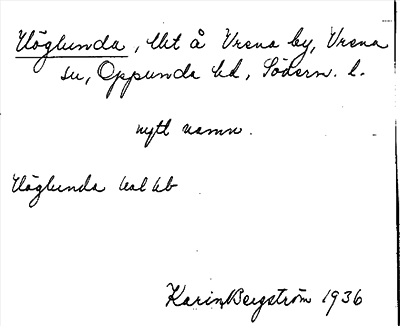 Höglunda, lht å Vrena by, Vrena
sn, Oppunda hd, Söderm. l.
nytt namn.
Höglunda hal hb
Karin Bergström 1936